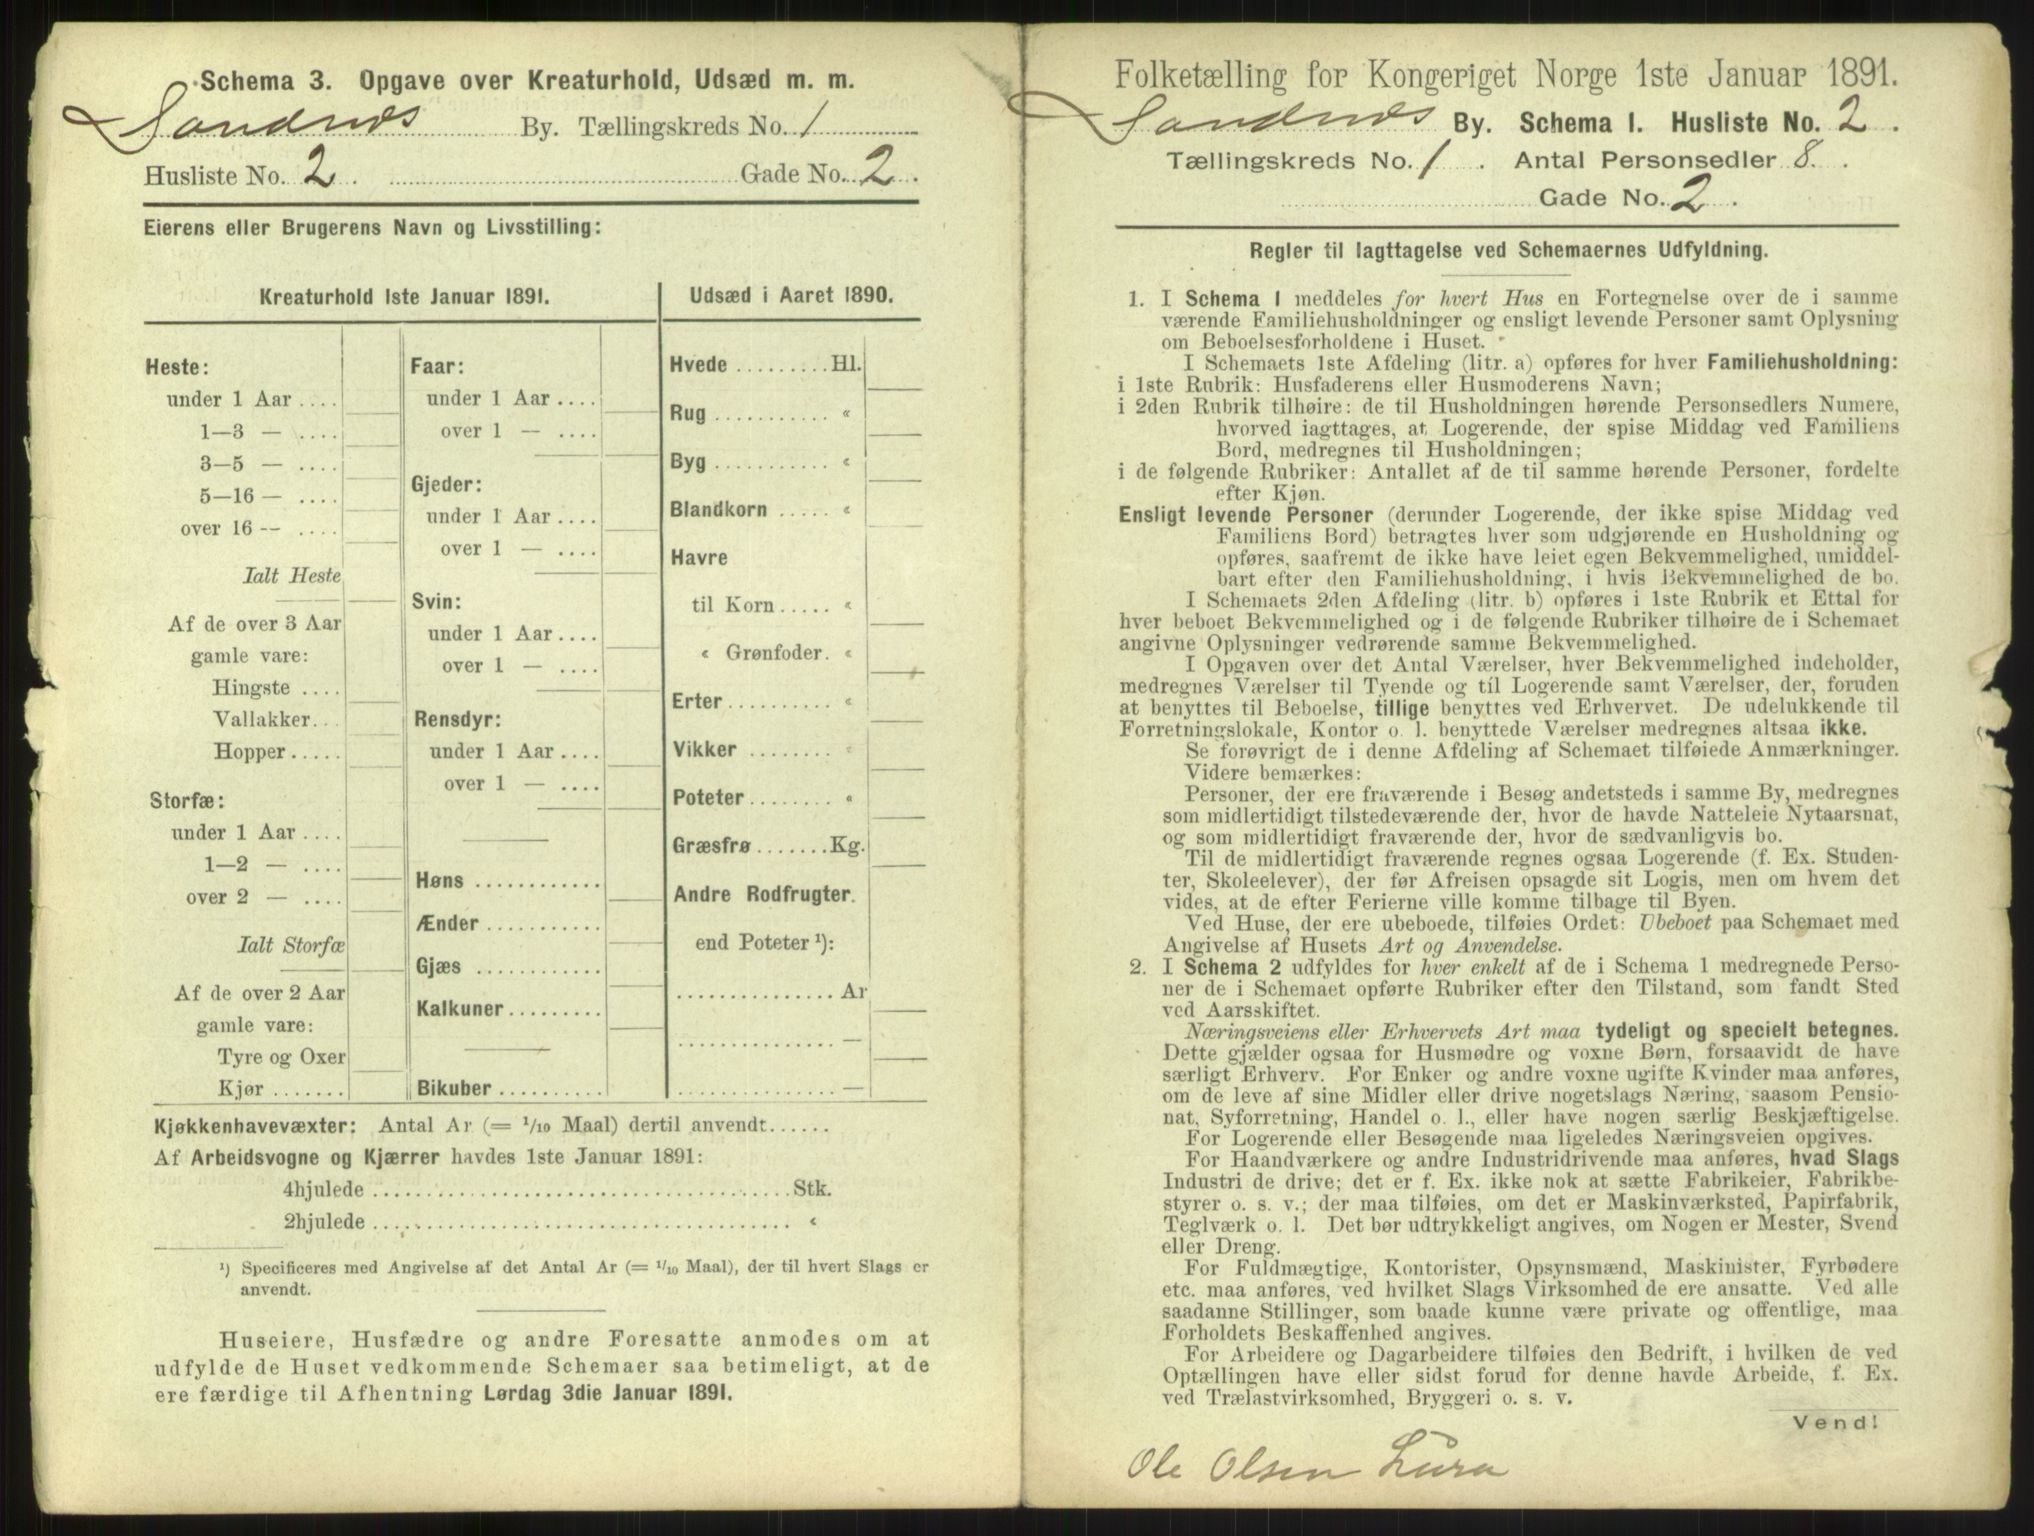 Schema 3. Opgave over Kreaturhold, Udsæd m. m.
Sandnæs By. Tællingskreds No. 1
Husliste No. 2. Gade No. 2.
Eierens eller Brugerens Navn og Livsstilling:
Kreaturhold 1ste Januar 1891.
Heste:
under 1 Aar ....
1—3 — ....
3—5 — ....
5—16 — ....
over 16 -- ....
Ialt Heste
Af de over 3 Aar
gamle vare:
Hingste ....
Vallakker...
Hopper.....
Storfæ:
under 1 Aar ....
1—2 — ....
over 2 — ....
Ialt Storfæ
Af de over 2 Aar
gamle vare:
Tyre og Oxer
Kjør .......
Faar:
under 1 Aar ....
over 1 — ....
Gjeder:
under 1 Aar ....
over 1 — ....
Svin:
under 1 Aar ....
over 1 — ....
Rensdyr:
under 1 Aar ....
over 1 — ....
Høns ............
Ænder ...........
Gjæs ............
Kalkuner.........
Bikuber ..........
Udsæd i Aaret 1890.
Hvede ......... Hl.
Rug ........... «
Byg ........... «
Blandkorn ..... «
Havre
til Korn ..... «
« Grønfoder. «
Erter .......... «
Vikker ........ «
Poteter ........ «
Græsfrø .......Kg.
Andre Rodfrugter
end Poteter ¹):
............... Ar
............... —
............... —
Kjøkkenhavevæxter: Antal Ar (= 1/10 Maal) dertil anvendt......
Af Arbeidsvogne og Kjærrer havdes 1ste Januar 1891:
4hjulede ........................................ Stk.
2hjulede ........................................ «
¹) Specificeres med Angivelse af det Antal Ar (= 1/10 Maal), der til hvert Slags er
anvendt.
Huseiere, Husfædre og andre Foresatte anmodes om at
udfylde de Huset vedkommende Schemaer saa betimeligt, at de
ere færdige til Afhentning Lørdag 3die Januar 1891.
Folketælling for Kongeriget Norge 1ste Januar 1891.
Sandnæs By. Schema 1. Husliste No. 2.
Tællingskreds No. 1. Antal Personsedler 8.
Gade No. 2.
Regler til Iagttagelse ved Schemaernes Udfyldning.
1. I Schema 1 meddeles for hvert Hus en Fortegnelse over de i samme
værende Familiehusholdninger og ensligt levende Personer samt Oplysning
om Beboelsesforholdene i Huset.
I Schemaets 1ste Afdeling (litr. a) opføres for hver Familiehusholdning:
i 1ste Rubrik: Husfaderens eller Husmoderens Navn;
i 2den Rubrik tilhøire: de til Husholdningen hørende Personsedlers Numere,
hvorved iagttages, at Logerende, der spise Middag ved Familiens
Bord, medregnes til Husholdningen;
i de følgende Rubriker: Antallet af de til samme hørende Personer, fordelte
efter Kjøn.
Ensligt levende Personer (derunder Logerende, der ikke spise Middag ved
Familiens Bord) betragtes hver som udgjørende en Husholdning og
opføres, saafremt de ikke have leiet egen Bekvemmelighed, umiddel-
bart efter den Familiehusholdning, i hvis Bekvemmelighed de bo.
I Schemaets 2den Afdeling (litr. b) opføres i 1ste Rubrik et Ettal for
hver beboet Bekvemmelighed og i de følgende Rubriker tilhøire de i Schemaet
angivne Oplysninger vedrørende samme Bekvemmelighed.
I Opgaven over det Antal Værelser, hver Bekvemmelighed indeholder,
medregnes Værelser til Tyende og til Logerende samt Værelser, der, foruden
at benyttes til Beboelse, tillige benyttes ved Erhvervet. De udelukkende til
Forretningslokale, Kontor o. l. benyttede Værelser medregnes altsaa ikke.
Se forøvrigt de i denne Afdeling af Schemaet tilføiede Anmærkninger.
Videre bemærkes:
Personer, der ere fraværende i Besøg andetsteds i samme By, medregnes
som midlertidigt tilstedeværende der, hvor de havde Natteleie Nytaarsnat,
og som midlertidigt fraværende der, hvor de sædvanligvis bo.
Til de midlertidigt fraværende regnes ogsaa Logerende (f. Ex. Studen-
ter, Skoleelever), der før Afreisen opsagde sit Logis, men om hvem det
vides, at de efter Ferierne ville komme tilbage til Byen.
Ved Huse, der ere ubeboede, tilføies Ordet: Ubeboet paa Schemaet med
Angivelse af Husets Art og Anvendelse.
2. I Schema 2 udfyldes for hver enkelt af de i Schema 1 medregnede Perso-
ner de i Schemaet opførte Rubriker efter den Tilstand, som fandt Sted
ved Aarsskiftet.
Næringsveiens eller Erhvervets Art maa tydeligt og specielt betegnes.
Dette gjælder ogsaa for Husmødre og voxne Børn, forsaavidt de have
særligt Erhverv. For Enker og andre voxne ugifte Kvinder maa anføres,
om de leve af sine Midler eller drive nogetslags Næring, saasom Pensio-
nat, Syforretning, Handel o. l., eller have nogen særlig Beskjæftigelse.
For Logerende eller Besøgende maa ligeledes Næringsveien opgives.
For Haandværkere og andre Industridrivende maa anføres, hvad Slags
Industri de drive; det er f. Ex. ikke nok at sætte Fabrikeier, Fabrikbe-
styrer o. s. v.; der maa tilføies, om det er Maskinværksted, Papirfabrik,
Teglværk o. l. Det bør udtrykkeligt angives, om Nogen er Mester, Svend
eller Dreng.
For Fuldmægtige, Kontorister, Opsynsmænd, Maskinister, Fyrbødere
etc. maa anføres, ved hvilket Slags Virksomhed de ere ansatte. Ved alle
saadanne Stillinger, som baade kunne være private og offentlige, maa
Forholdets Beskaffenhed angives.
For Arbeidere og Dagarbeidere tilføies den Bedrift, i hvilken de ved
Optællingen have eller sidst forud for denne havde Arbeide, f. Ex.
ved Trælastvirksomhed, Bryggeri o. s. v.
Vend!
Ole Olsen Lura